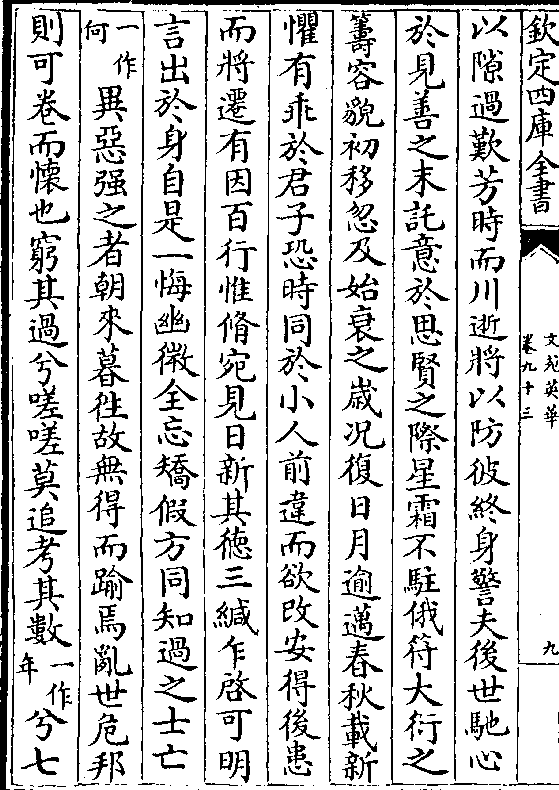 欽定四庫全書
文苑英華
卷九十三
九
以隙過歎芳時而川逝將以防彼終身警夫後世馳心
於見善之末託意於思賢之際星霜不駐俄符大衍之
籌容貌初移忽及始衰之歲況復日月逾邁春秋載新
懼有乖於君子恐時同於小人前違而欲改安得後患
而將遷有因百行惟脩宛見日新其德三緘乍啓可明
言出於身自是一悔幽微全忘矯假方同知過之士亡
一作何異惡强之者朝來暮徃故無得而踰焉亂世危邦
則可卷而懷也窮其過兮嗟嗟莫追考其數一作年兮七